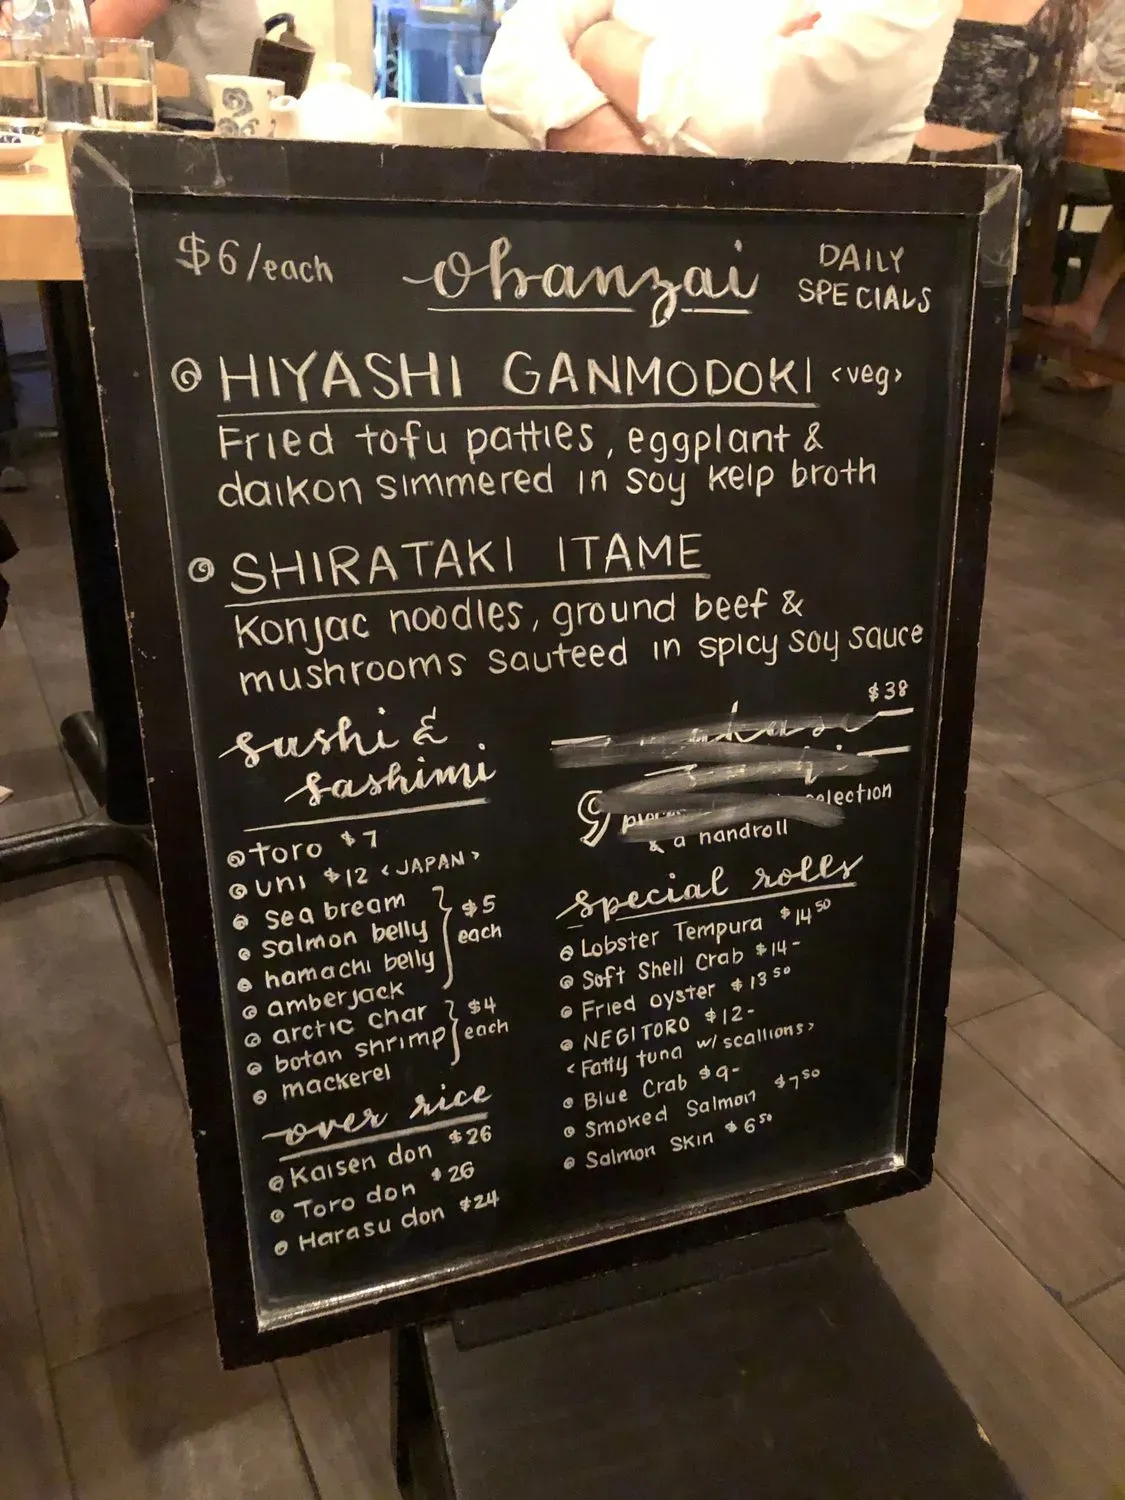 $6/each
obanzai
DAILY
SPECIALS
HIYASHI GANMODOKI <veg>
Fried tofu patties, eggplant &
daikon simmered in soy kelp broth
SHIRATAKI ITAME
Konjac noodles, ground beef &
mushrooms sauteed in spicy soy sauce
sushi &
sashimi
toro $7
uni $12 <JAPAN>
sea bream
salmon belly
hamachi belly
amberjack
$5
each
arctic char
botan shrimp
mackerel
$4
each
over rice
Kaisen don $26
Toro don $26
Harasu don $24
$38
9
selection
& a handroll
special rolls
Lobster Tempura $14 50
Soft Shell Crab $14-
Fried oyster $13 50
NEGITORO $12-
<Fatty tuna w/ scallions>
Blue Crab $9-
Smoked Salmon $7 50
Salmon Skin $6 50